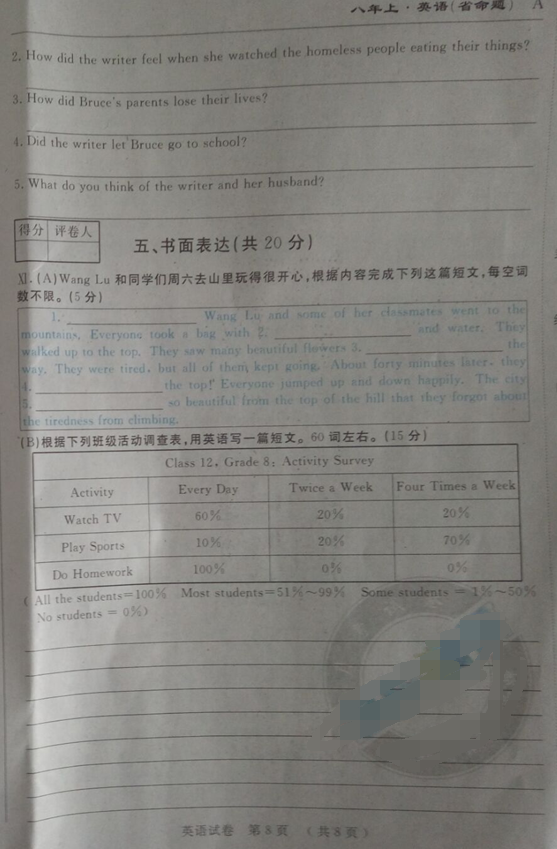 八年上·英语(省命题) A
2. How did the writer feel when she watched the homeless people eating their things?
3. How did Bruce's parents lose their lives?
4. Did the writer let Bruce go to school?
5. What do you think of the writer and her husband?
得分 评卷人
五、书面表达(共 20 分)
Ⅺ. (A)Wang Lu 和同学们周六去山里玩得很开心,根据内容完成下列这篇短文,每空词
数不限。(5 分)
1. ____________ Wang Lu and some of her classmates went to the
mountains. Everyone took a bag with 2. ____________ and water. They
walked up to the top. They saw many beautiful flowers 3. ____________ the
way. They were tired, but all of them kept going. About forty minutes later, they
4. ____________ the top! Everyone jumped up and down happily. The city
5. ____________ so beautiful from the top of the hill that they forgot about
the tiredness from climbing.
(B)根据下列班级活动调查表,用英语写一篇短文。60 词左右。(15 分)
Class 12, Grade 8: Activity Survey
Activity Every Day Twice a Week Four Times a Week
Watch TV 60% 20% 20%
Play Sports 10% 20% 70%
Do Homework 100% 0% 0%
(All the students=100% Most students=51%~99% Some students = 1%~50%
No students = 0%)
英语试卷 第 8 页 (共 8 页)